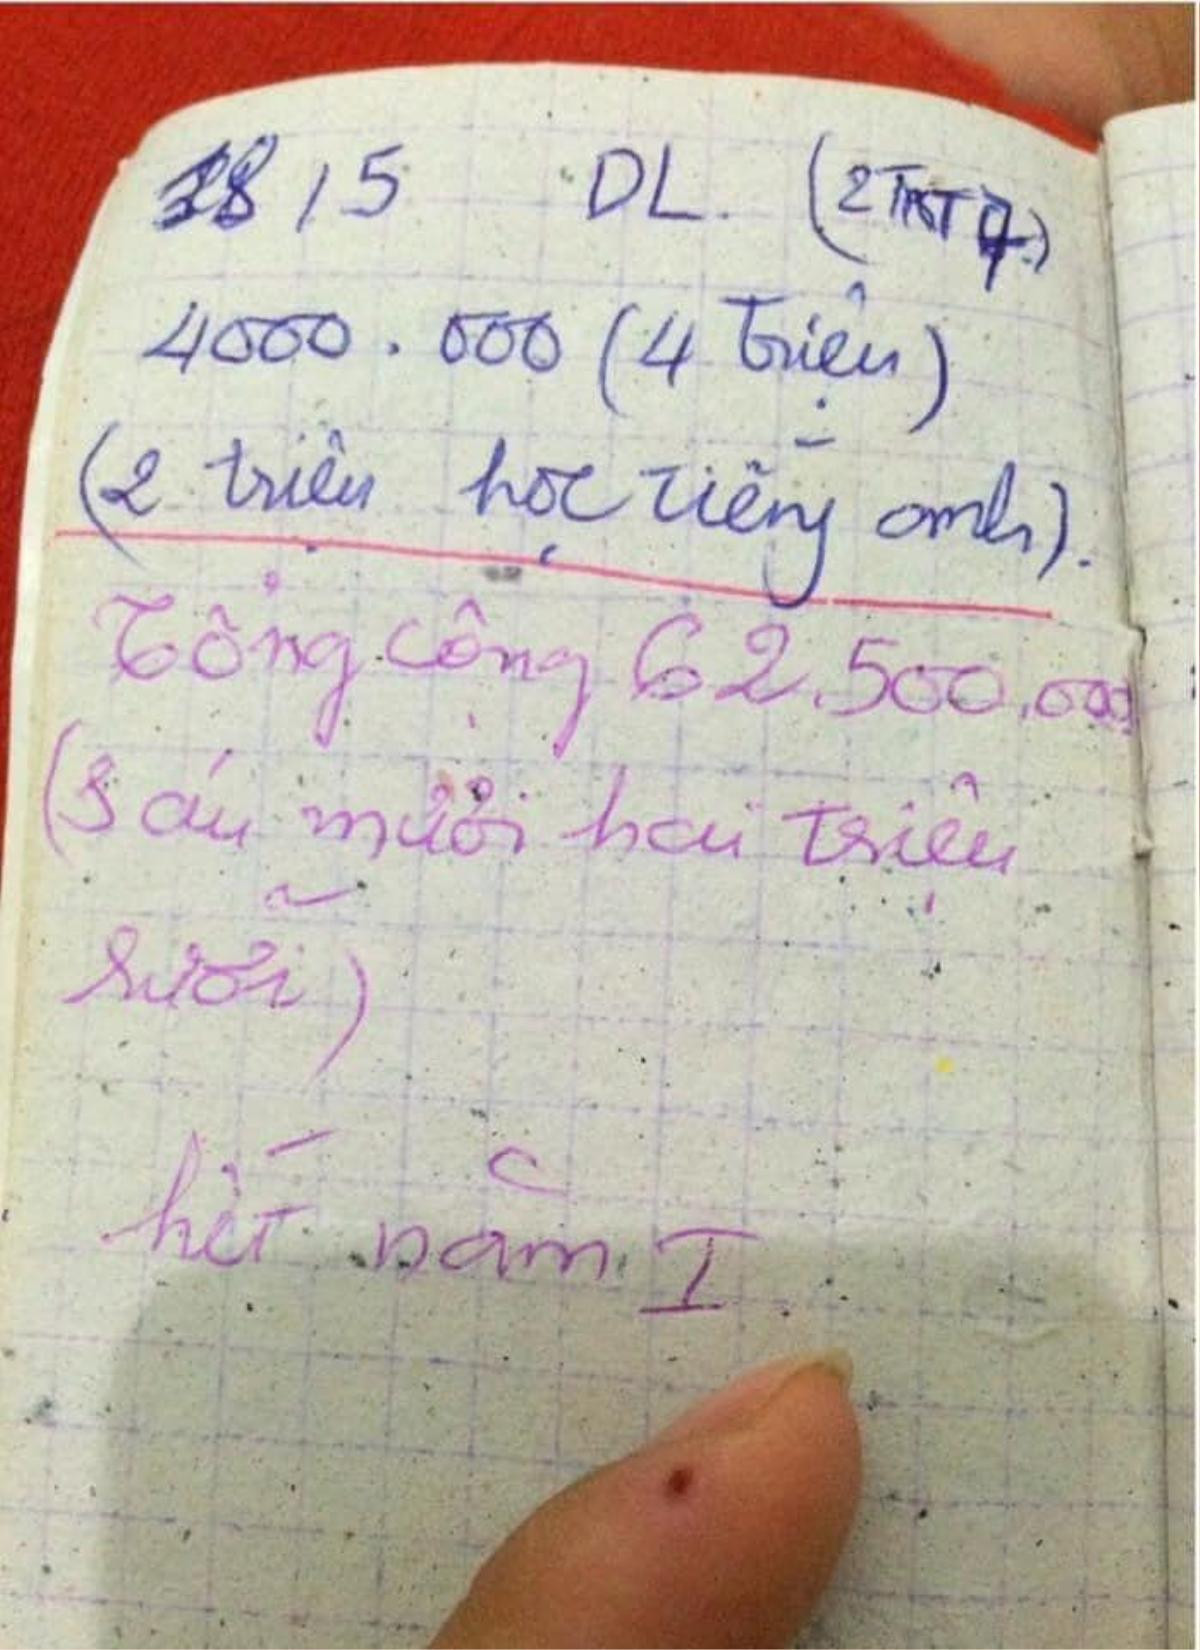 18/5 DL. (2
4000.000 (4 triệu)
(2 triệu học tiếng anh).
Tổng cộng 62.500.000
(Sáu mười hai triệu
rưỡi)
hết năm I